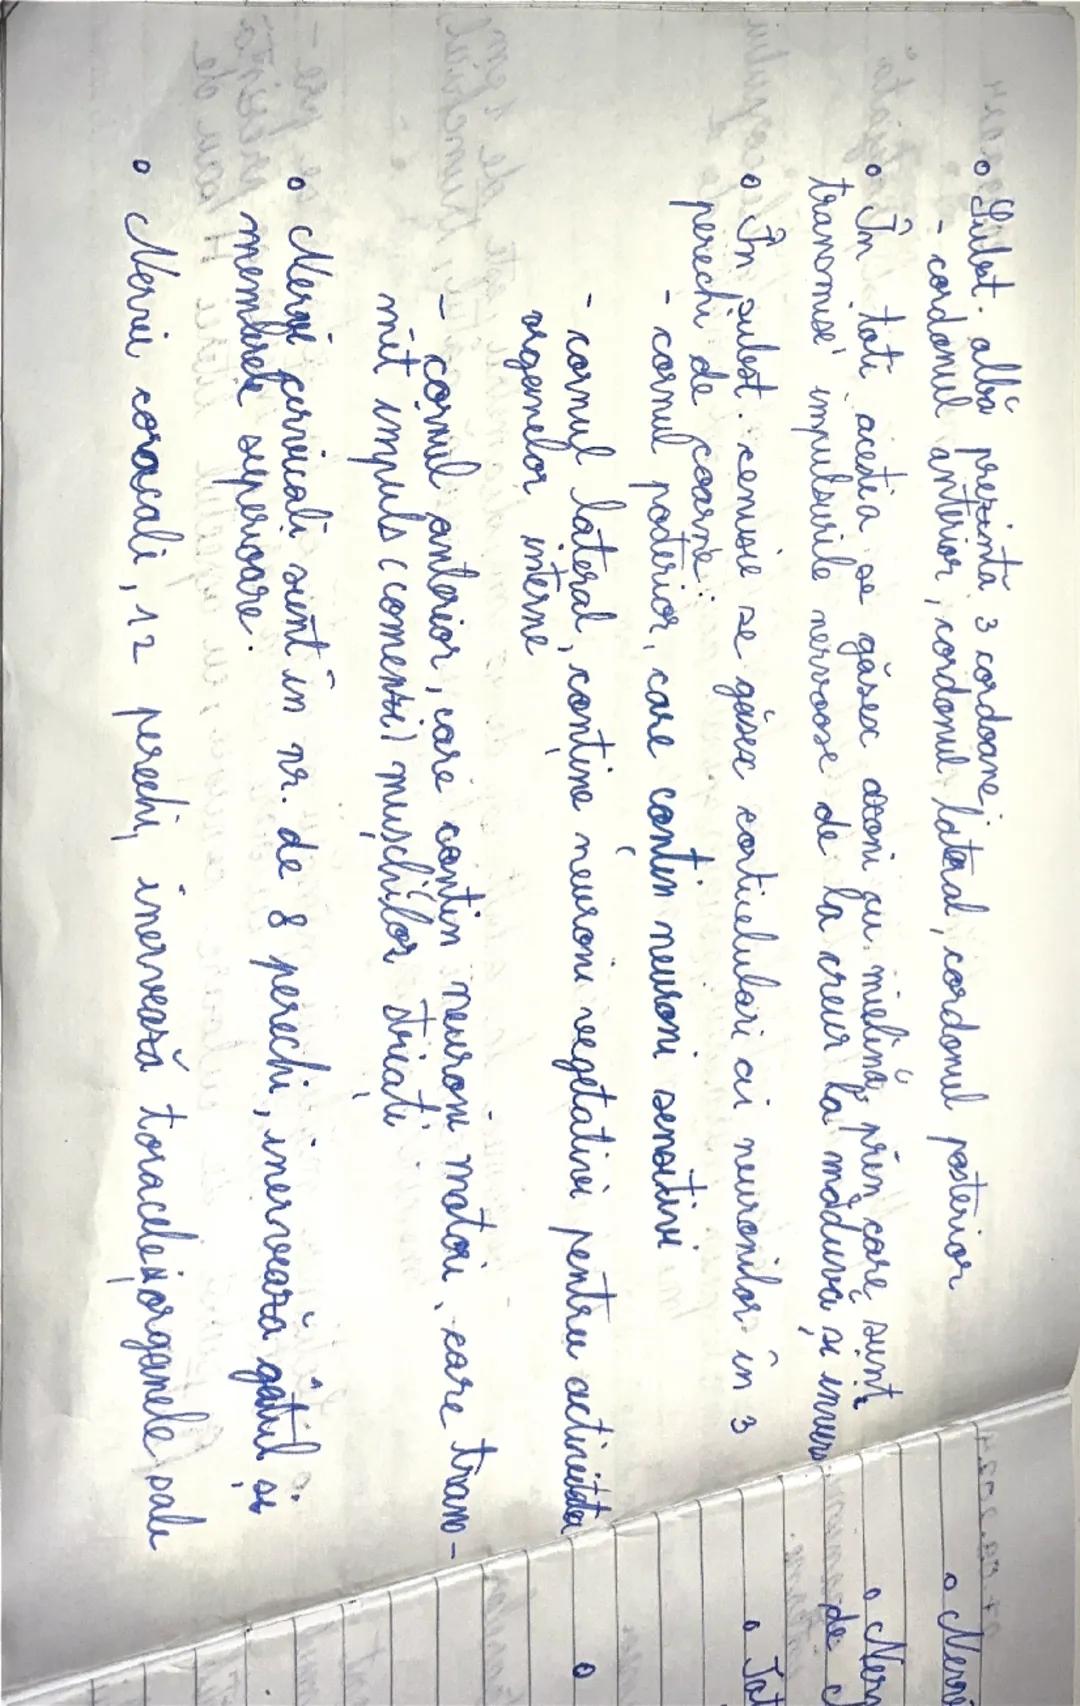 • Subst. albă prezintă 3 cordoane;
- cordonul anterior, cordonul lateral, cordonul posterior
• În toți aceștia se găsesc axoni cu mielină, prin care sunt
transmise impulsurile nervoase de la creier la măduva și invers
• În subst. cenusie se găsesc corticelulari ai neuronilor în 3
perechi de coarne:
- cornul posterior, care conțin neuroni senzitivi
- cornul lateral, conține neuroni vegetativi pentru activitatea
organelor interne
- cornul anterior, care conțin neuroni motori, care trans-
mit impuls (comenzi) mușchilor striați
• Nervii cervicali sunt în nr. de 8 perechi, inervează gâtul și
membrele superioare.
• Nervii coracali, 12 perechi, inervează toracele și organele sale
• Nerv
• Nerv
de
• Tot